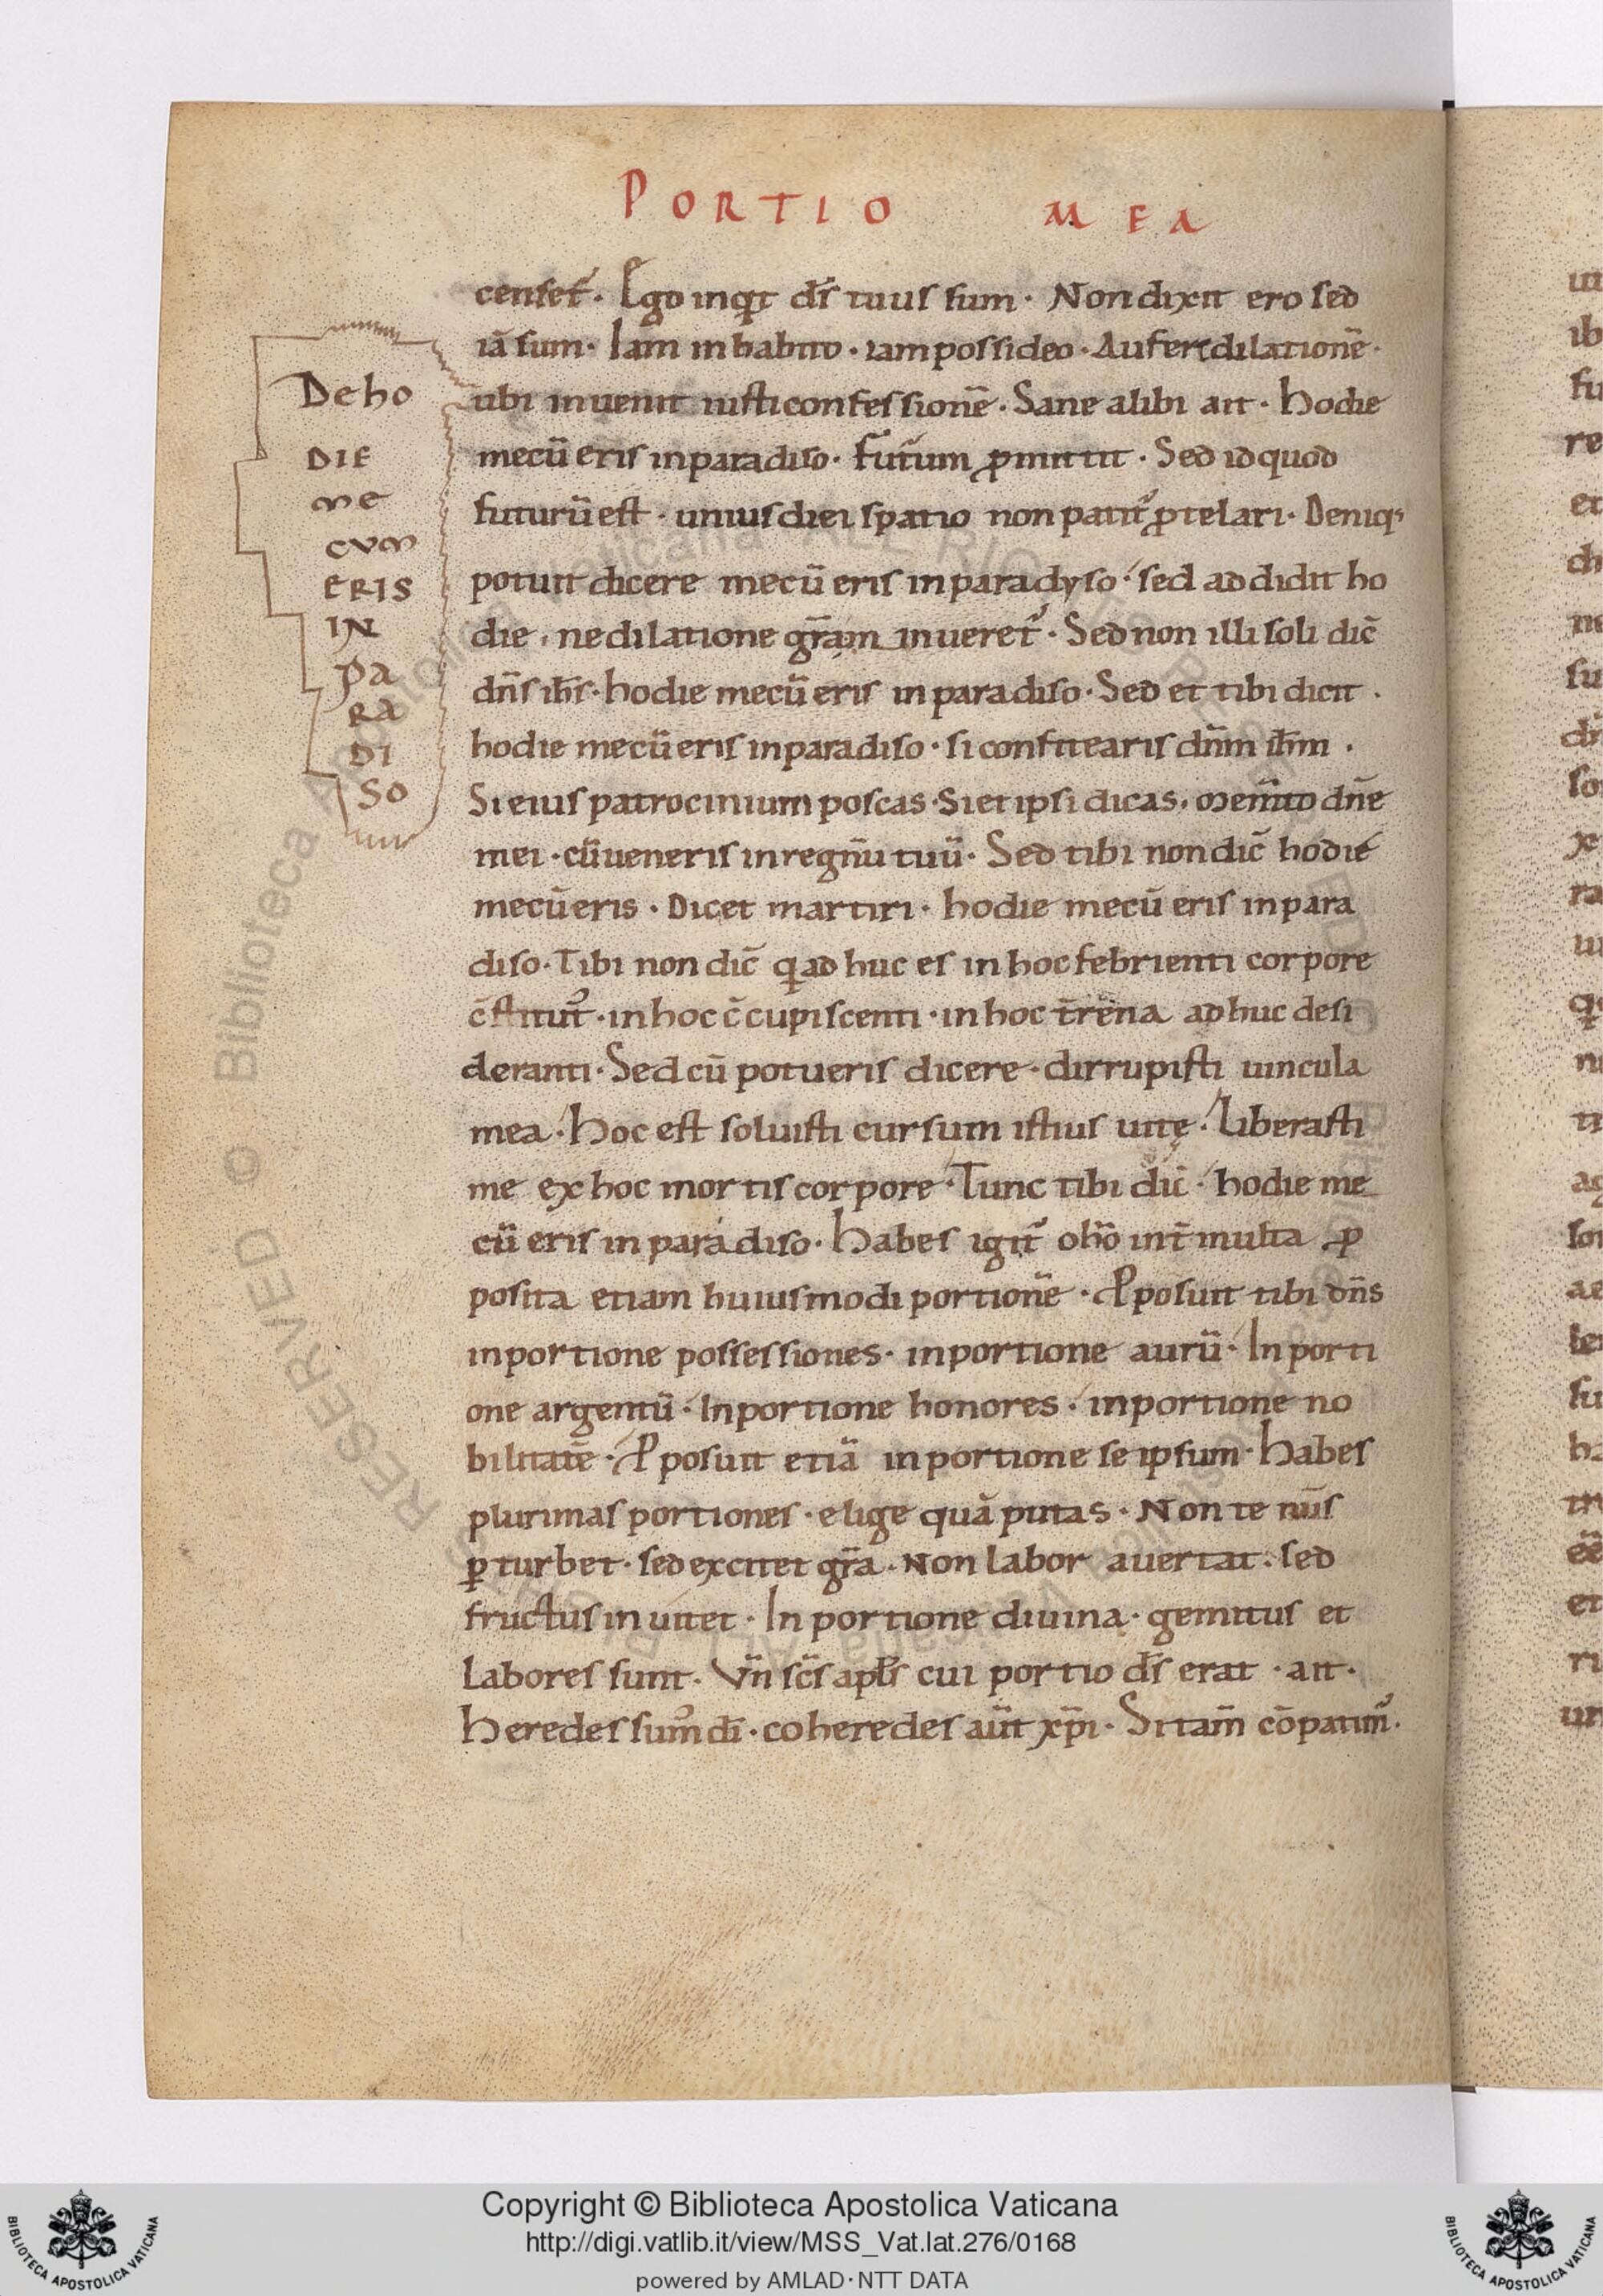 PORTIO MEA
censet᷑. Ego inqt d̄s tuus sum. Non dixit ero sed
iā sum. Iam inhabito. iam possideo. Aufert dilationē.
ubi inuenit iusti confessionē. Sane alibi ait. hodie
mecū eris in paradiso. futurum ꝓmittit. Sed id quod
futurū est. unius diei spatio non patit᷑ ꝓtelari. Deniq;
potuit dicere mecū eris in paradyso. sed addidit ho
die. ne dilatione gr̄am inueret᷑. Sed non illi soli dic̄
dn̄s ih̄s. hodie mecū eris in paradiso. Sed et tibi dicit.
hodie mecū eris in paradiso. si confitearis dn̄m ih̄m.
Si eius patrocinium poscas. Si et ipsi dicas. mem̄to dn̄e
mei. cū ueneris in regnū tuū. Sed tibi non dic̄ hodie
mecū eris. Dicet martiri. hodie mecū eris in para
diso. Tibi non dic̄ q adhuc es in hoc febrienti corpore
c̄stitut᷑. in hoc c̄cupiscenti. in hoc t̄rena adhuc desi
deranti. Sed cū potueris dicere. dirrupisti uincula
mea. hoc est soluisti cursum istius uitę. Liberasti
me ex hoc mortis corpore. Tunc tibi dic̄. hodie me
cū eris in paradiso. habes igit᷑ o hō int̄ multa ꝓ
posita etiam huiusmodi portionē. Ꝓposuit tibi dn̄s
in portione possessiones. in portione aurū. In porti
one argentū. In portione honores. in portione no
bilitatē. Ꝓposuit etiā in portione se ipsum. habes
plurimas portiones. elige quā putas. Non te num̄s
ꝑturbet. sed excitet gr̄a. Non labor auertat. sed
fructus inuitet. In portione diuina. gemitus et
labores sunt. Vn̄ sc̄s apl̄s cui portio d̄s erat. ait.
heredes sum᷒ dī. coheredes aūt xp̄i. Si tam̄ cōpatim᷑.
De ho
DIE
me
cum
ERIS
IN
pa
RA
DI
SO
Copyright © Biblioteca Apostolica Vaticana
http://digi.vatlib.it/view/MSS_Vat.lat.276/0168
powered by AMLAD·NTT DATA
BIBLIOTECA APOSTOLICA VATICANA
BIBLIOTECA APOSTOLICA VATICANA